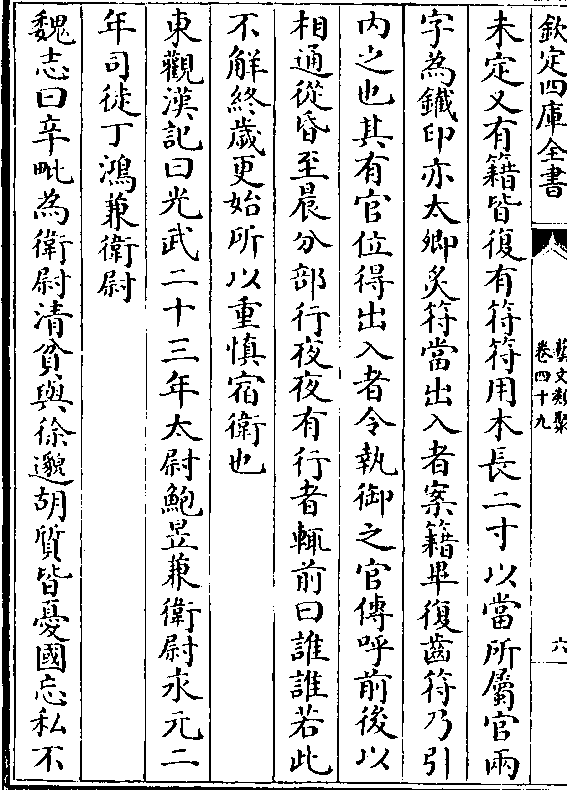 欽定四庫全書
藝文類聚
卷四十九
六
未定又有籍皆復有符符用木長二寸以當所屬官兩
字為鐵印亦太卿炙符當出入者案籍畢復齒符乃引
內之也其有官位得出入者令執御之官傳呼前後以
相通從昏至晨分部行夜夜有行者輒前曰誰誰若此
不解終歲更始所以重慎宿衛也
東觀漢記曰光武二十三年太尉鮑昱兼衛尉永元二
年司徒丁鴻兼衛尉
魏志曰辛毗為衛尉清貧與徐邈胡質皆憂國忘私不